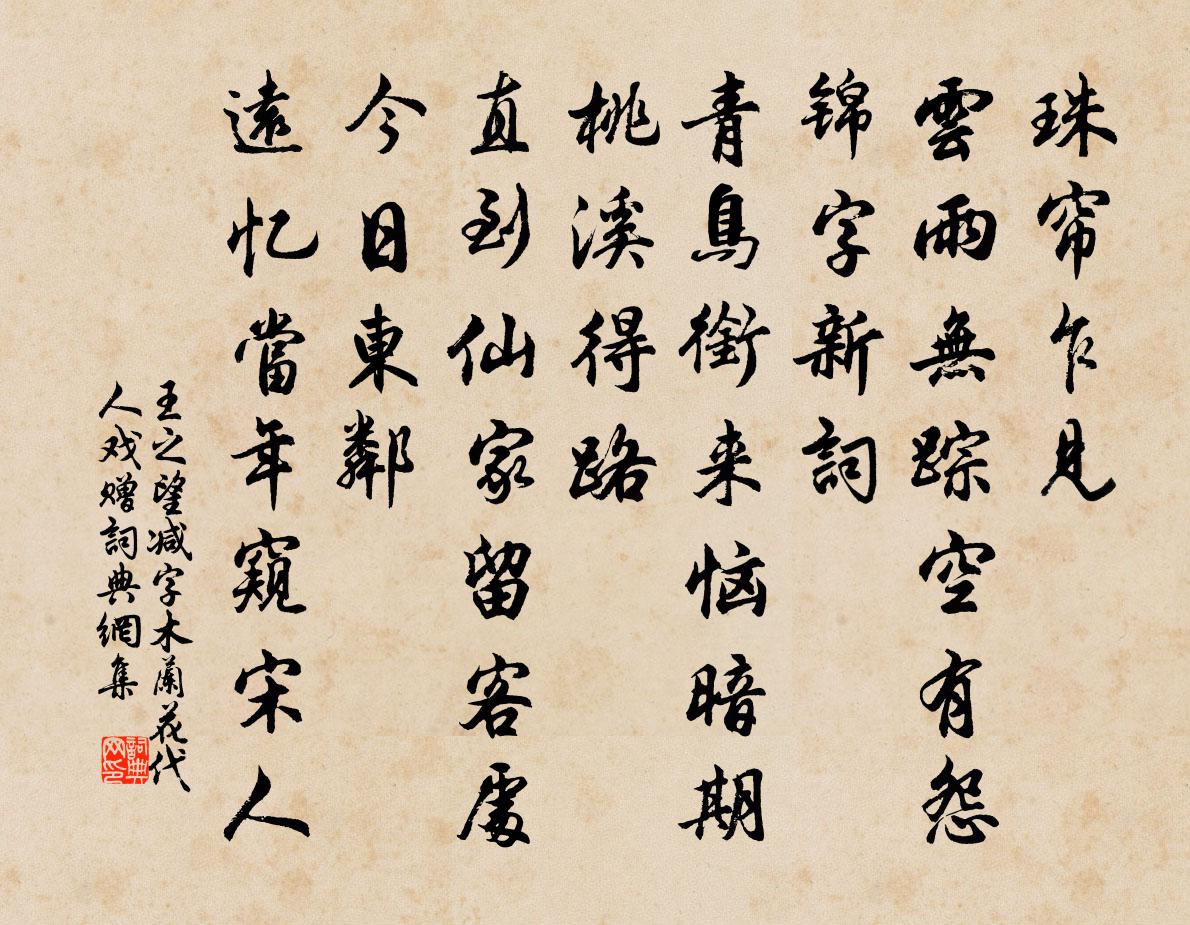 珠帘乍見
雲雨無踪空有怨
锦字新詞
青鳥銜来恼暗期
桃溪得路
直到仙家留客處
今日東鄰
遠忆當年窺宋人
王之望减字木蘭花代
人戏赠詞典網集
詞典
网印